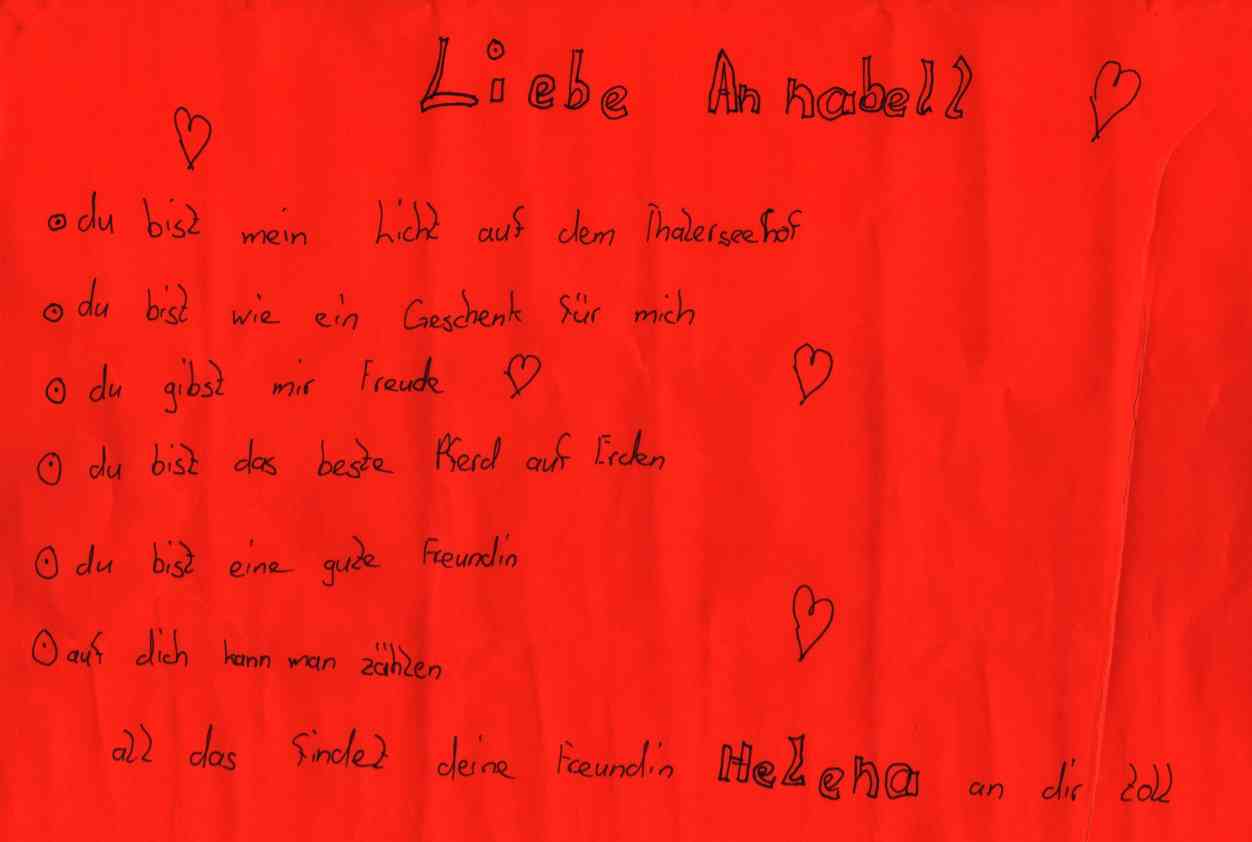 Liebe Annabell
du bist mein Licht auf dem Thalerseehof
du bist wie ein Geschenk für mich
du gibst mir Freude
du bist das beste Pferd auf Erden
du bist eine gute Freundin
auf dich kann man zählen
all das findet deine Freundin Helena an dir toll